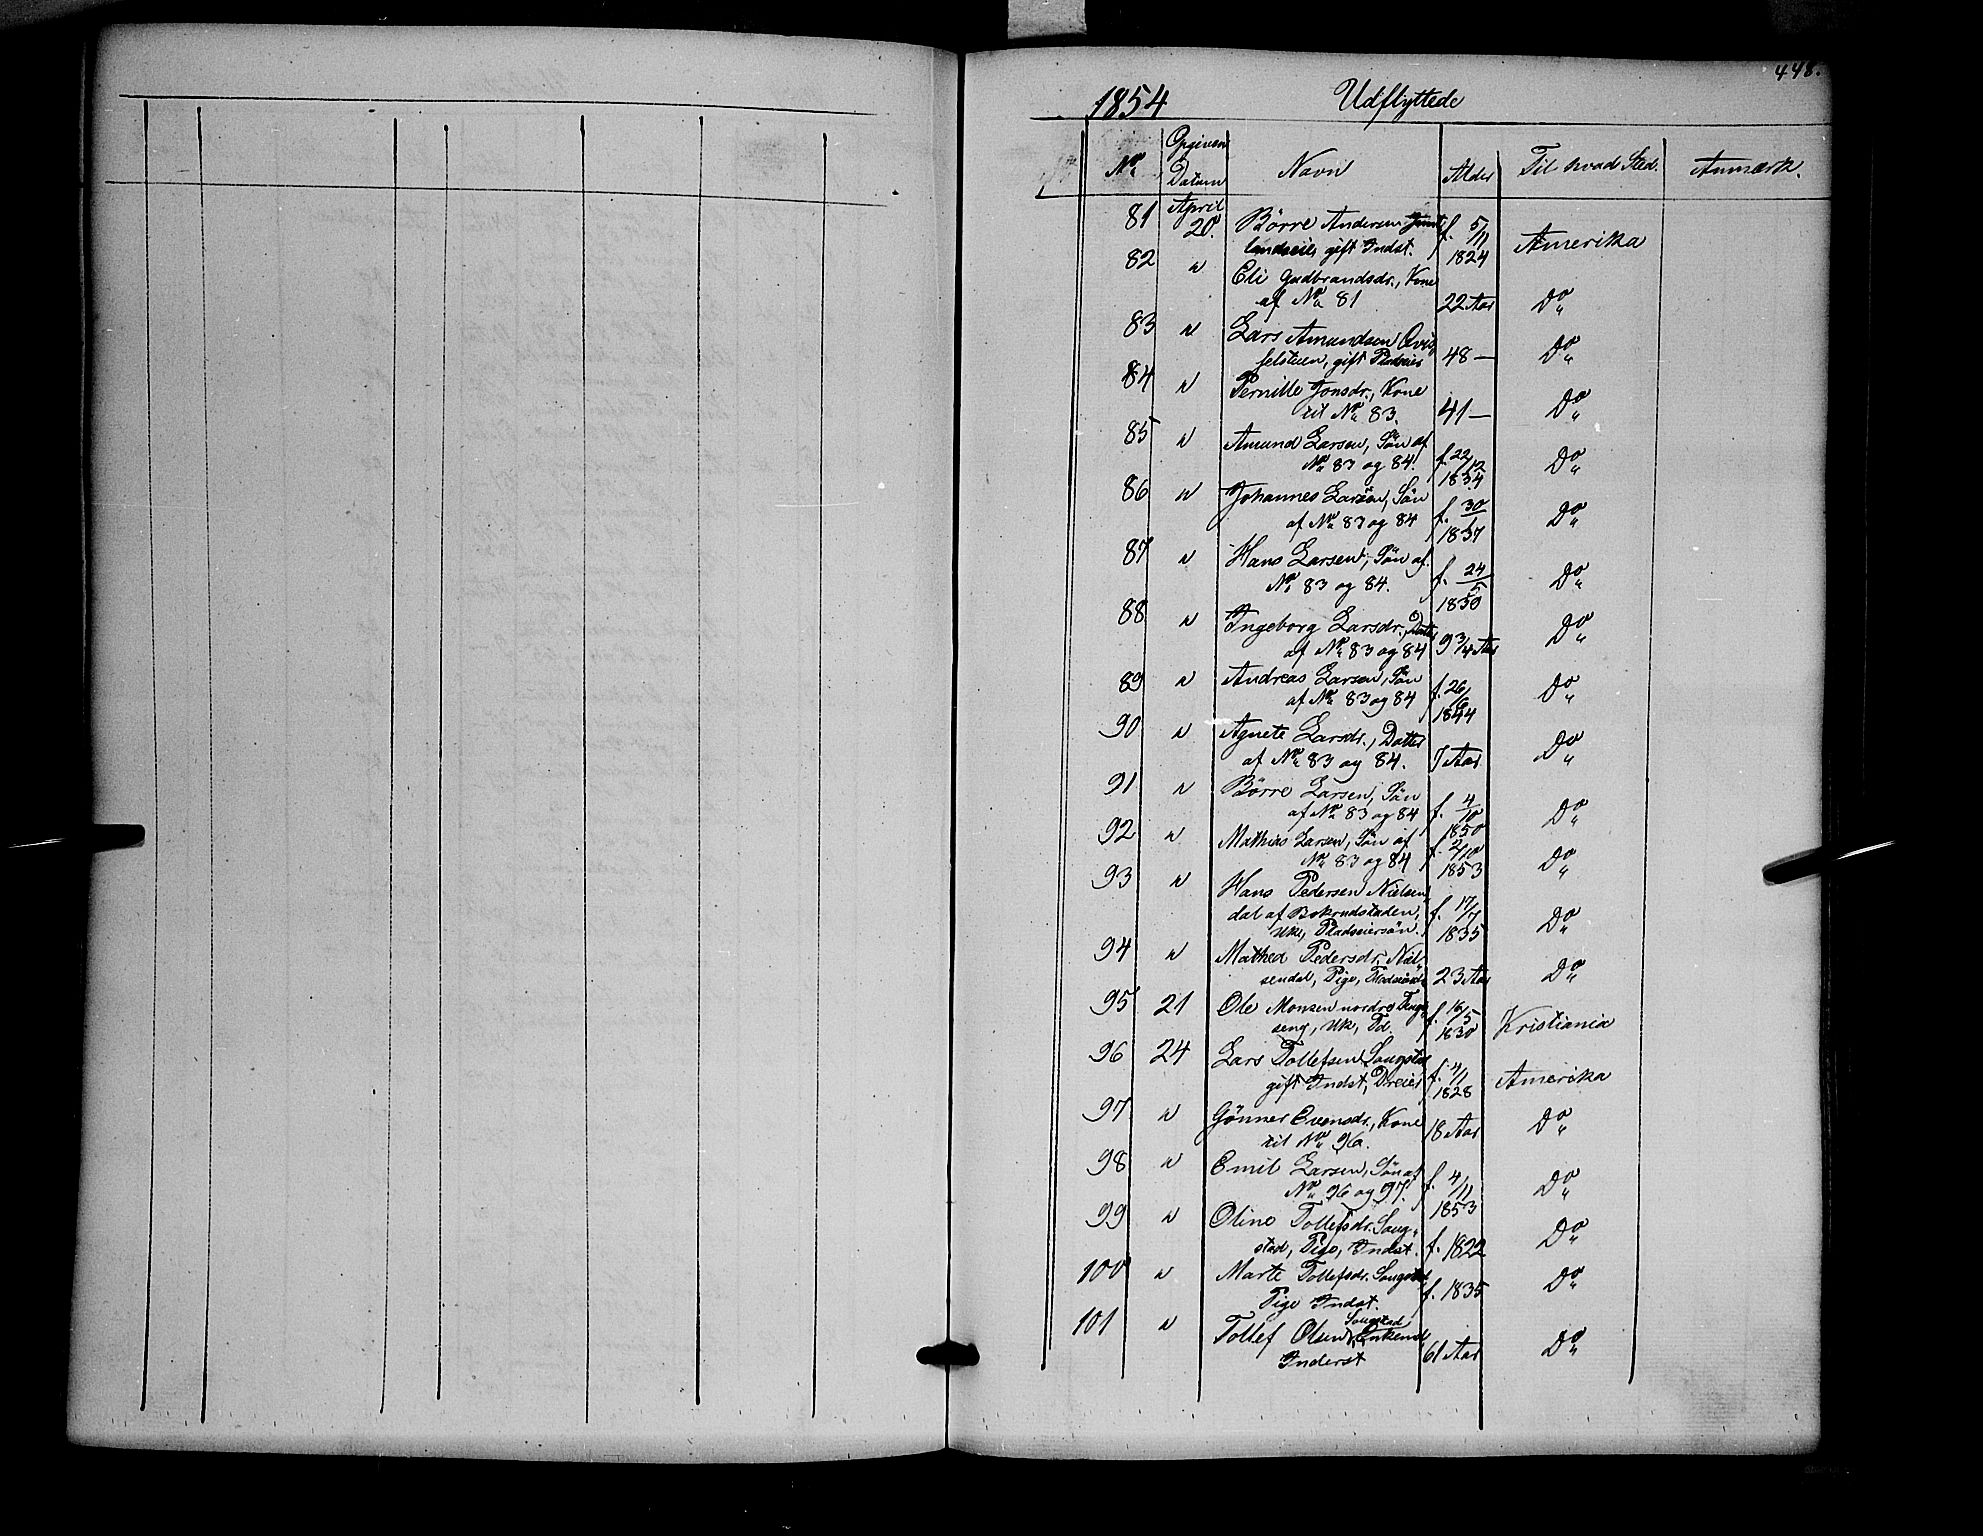 448.
1854 Udflyttede
No. Opgivens Datum Navn Alder Til hvad Sted. Anmærk.
81 April 20. Börre Andersen f. 5/11
landseie, gift Indst. 1824 Amerika
82 " Eli Gudbrandsdr., Kone
af No. 81 22 Aar Do "
83 " Lars Amundsen Qvis
felsteen, gift Pladseier 48 — Do "
84 " Pernille Jonsdr., Kone
til No. 83. 41 — Do "
85 " Amund Larsen, Sön af
No. 83 og 84. f. 22/12 1834 Do "
86 " Johannes Larsen, Sön
af No. 83 og 84 f. 30/1 1837 Do "
87 " Hans Larsen, Sön af
No. 83 og 84. f. 24/5 1830 Do "
88 " Ingeborg Larsdr., Datter
af No. 83 og 84 9 3/4 Aar Do "
89 " Andreas Larsen, Sön
af No. 83 og 84 f. 26/6 1844 Do "
90 " Agnete Larsdr., Datter
af No. 83 og 84. 7 Aar Do "
91 " Börre Larsen, Sön
af No. 83 og 84 f. 4/10 1850 Do "
92 " Mathias Larsen, Sön af
No. 83 og 84 f. 2/10 1853 Do "
93 " Hans Pedersen Nielsen
dal af Bokrudstaden, f. 17/7
Uk., Pladseiersön. 1835 Do "
94 " Mathea Pedersdr. Niel-
sendal, Pige, 23 Aar Do "
95 21 Ole Monsen nordre Tings
seng, Uk, Td. f. 16/5 1830 Kristiania
96 24 Lars Tollefsen Saugstad
gift Indst, Dreier f. 4/1 1828 Amerika
97 " Gönner Evensdr., Kone
til No. 96. 18 Aar Do "
98 " Emil Larsen, Sön af
No. 96 og 97. f. 4/11 1853 Do "
99 " Oline Tollefsdr. Saug-
stad, Pige, Indst. f. 1822 Do "
100 " Marte Tollefsdr. Saugstad
Pige Indst. f. 1835 Do "
101 " Tollef Olsen Saugstad, Enkemd,
Inderst 61 Aar Do "